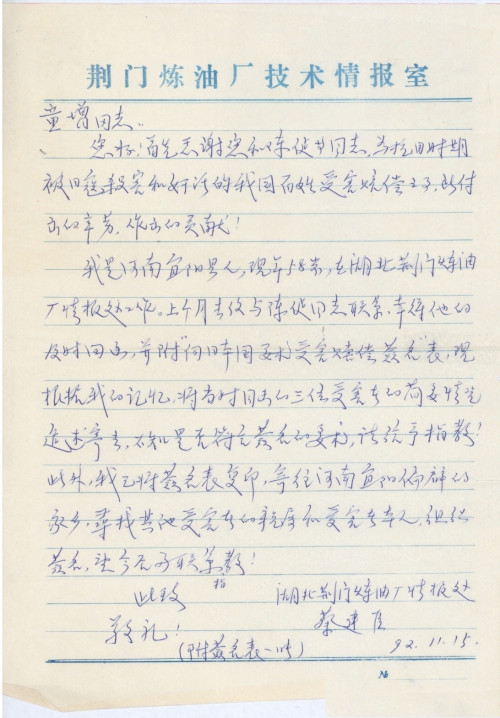 荆门炼油厂技术情报室
童增同志：
您好！首先感谢您和陈健同志，为抗日时期
被日寇杀害和奸污的我国百姓受害赔偿之事，所付
出的辛劳，作出的贡献！
我是河南宜阳县人，现年58岁，在湖北荆门炼油
厂情报处工作。上个月去信与陈健同志联系，幸得他的
及时回函，并附"向日本国要求受害赔偿签名"表，现
根据我的记忆，将当时同去的三位受害者的简要情况
追述寄去，不知是否符合签名的要求，请给予指教！
此外，我已将签名表复印，寄往河南宜阳偏僻的
家乡，寻找其他受害者的亲属和受害者本人，组织
签名，望今后多联系指教！
此致
湖北荆门炼油厂情报处
敬礼！
蔡建
(附签名表一份)
92.11.15.
№